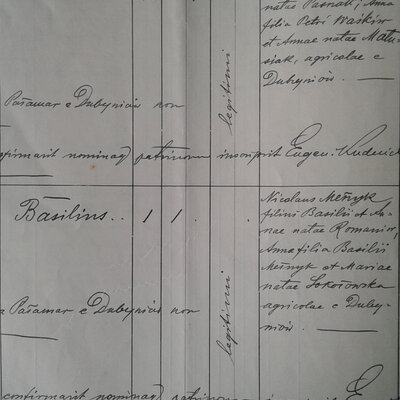 natae Pasnak; Anna
filia Petri Waśkiw
et Annae natae Matu-
siak, agricolae e
Dubyniów.
Pašamar e Dubyniów non
legitimi
confirmavit nominavi patrinorum inscripsit Eugen.
Basilius. 1 1
Nicolaus Melnyk
filius Basilii et An-
nae natae Romaniw,
Anna filia Basilii
Melnyk et Mariae
natae Sokołowska
agricolae e Duby-
niów.
Pašamar e Dubyniów non
legitimi
confirmavit nominavi patrinorum